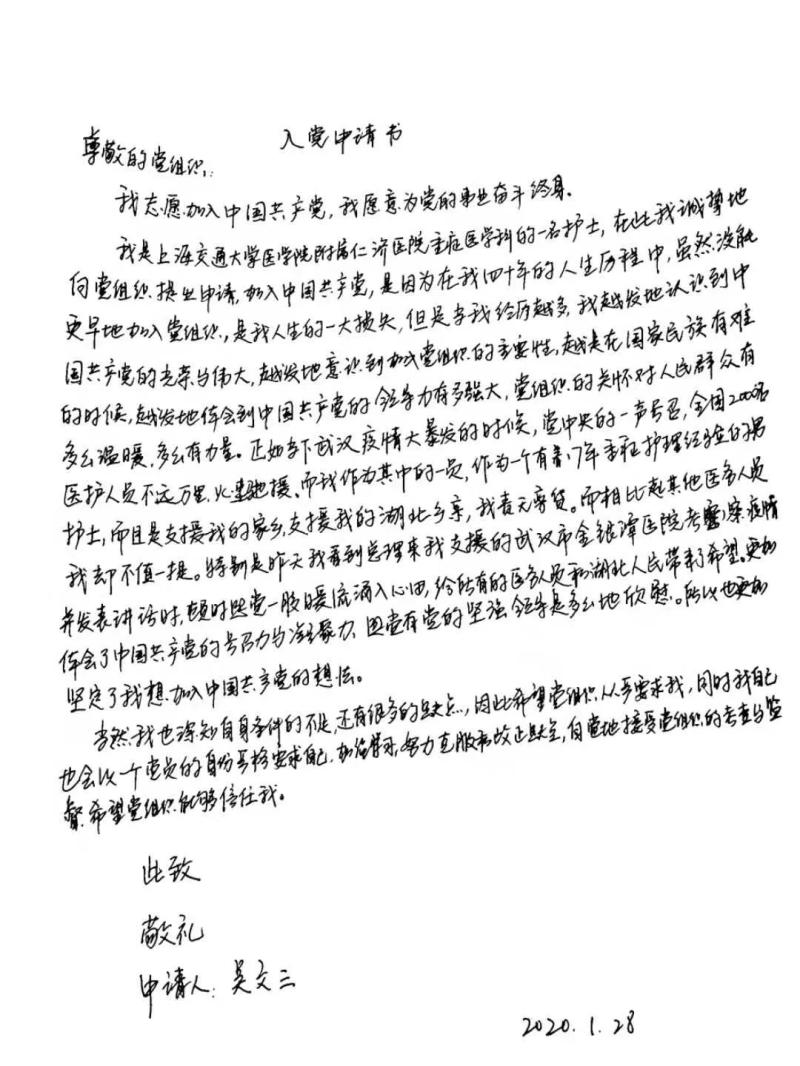 入党申请书
尊敬的党组织:
我志愿加入中国共产党,我愿意为党的事业奋斗终身。
我是上海交通大学医学院附属仁济医院重症医学科的一名护士,在此我诚挚地
向党组织提出申请,加入中国共产党,是因为在我四十年的人生历程中,虽然没能
更早地加入党组织,是我人生的一大损失,但是等我经历越多,我越发地认识到中
国共产党的光荣与伟大,越发地意识到加入党组织的重要性,越是在国家民族有难
的时候,越发地体会到中国共产党的领导力有多强大,党组织的关怀对人民群众有
多么温暖,多么有力量。正如当下武汉疫情大暴发的时候,党中央的一声号召,全国2000名
医护人员不远万里,火速驰援。而我作为其中的一员,作为一个有着17年重症护理经验的男
护士,而且是支援我的家乡,支援我的湖北乡亲,我责无旁贷。而相比起其他医务人员
我却不值一提。特别是昨天我看到总理来我支援的武汉市金银潭医院考察疫情
并发表讲话时,顿时感觉一股暖流涌入心田,给所有的医务人员和湖北人民带来了希望。更加
体会了中国共产党的号召力与凝聚力,因党有党的坚强领导是多么地欣慰。所以也更加
坚定了我想加入中国共产党的想法。
当然我也深知自身条件的不足,还有很多的缺点,因此希望党组织从严要求我,同时我自己
也会以一个党员的身份严格要求自己,加强学习,努力克服和改正缺点,自觉地接受党组织的考查与监
督,希望党组织能够信任我。
此致
敬礼
申请人:吴文三
2020.1.28